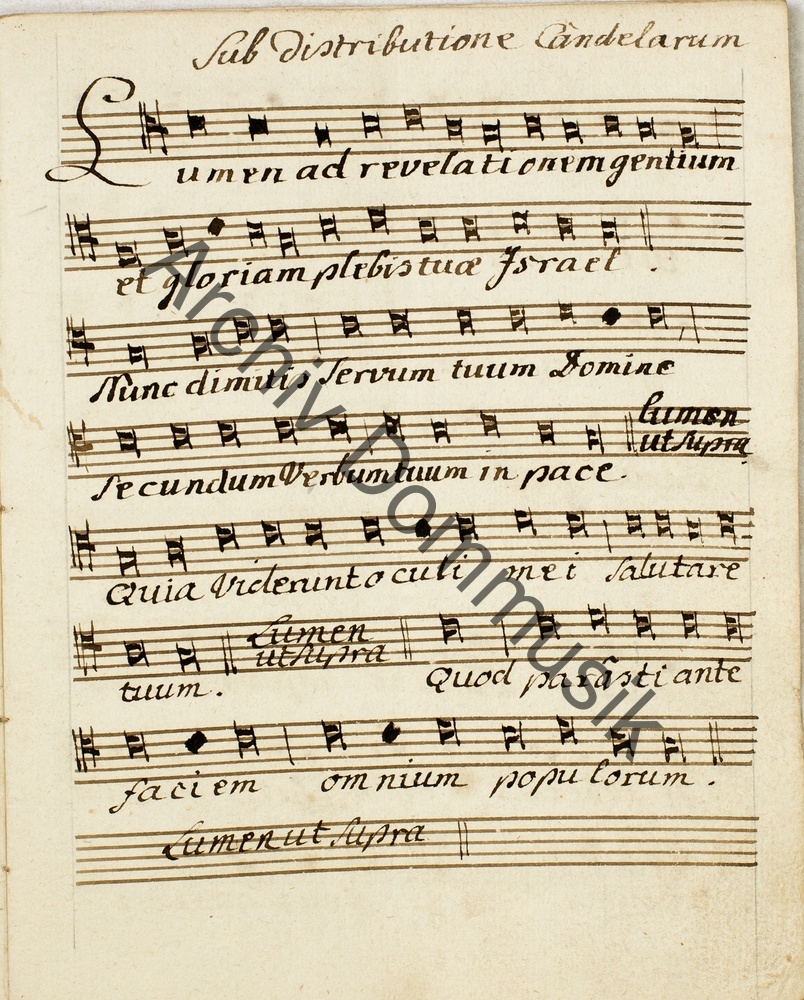 Sub Distributione Candelarum
Lumen ad revelationem gentium
et gloriam plebis tuæ Israel .
Nunc dimitis Servum tuum Domine
Secundum Verbum tuum in pace .
lumen
ut supra
Quia Viderunt oculi mei salutare
tuum .
Lumen
ut supra
Quod parâsti ante
faciem omnium populorum .
Lumen ut supra
Archiv Dommusik